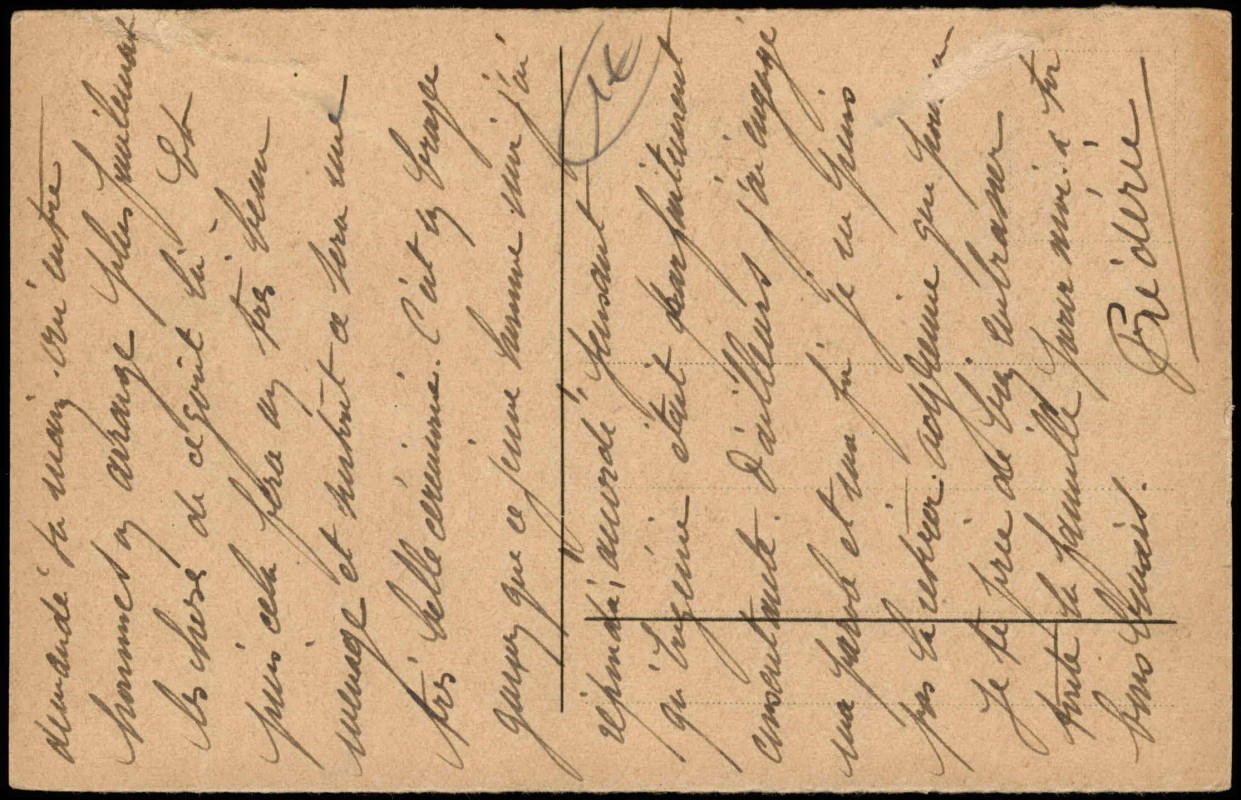 demandé sa main. Qu'entre
hommes on arrange plus facilement
les choses de ce goût là. Et
puis cela fera un très beau
ménage et surtout ce sera une
très belle cérémonie. C'est en
que ce jeune homme j'ai
répondu, accordé, pensant
qu'Eugénie était parfaitement
consentante. D'ailleurs j'ai engagé
ma parole et ma foi je ne puis
pas la retirer.
Je te prie de bien embrasser
toute la famille pour moi. à toi
bons baisers.
Bédérie
16